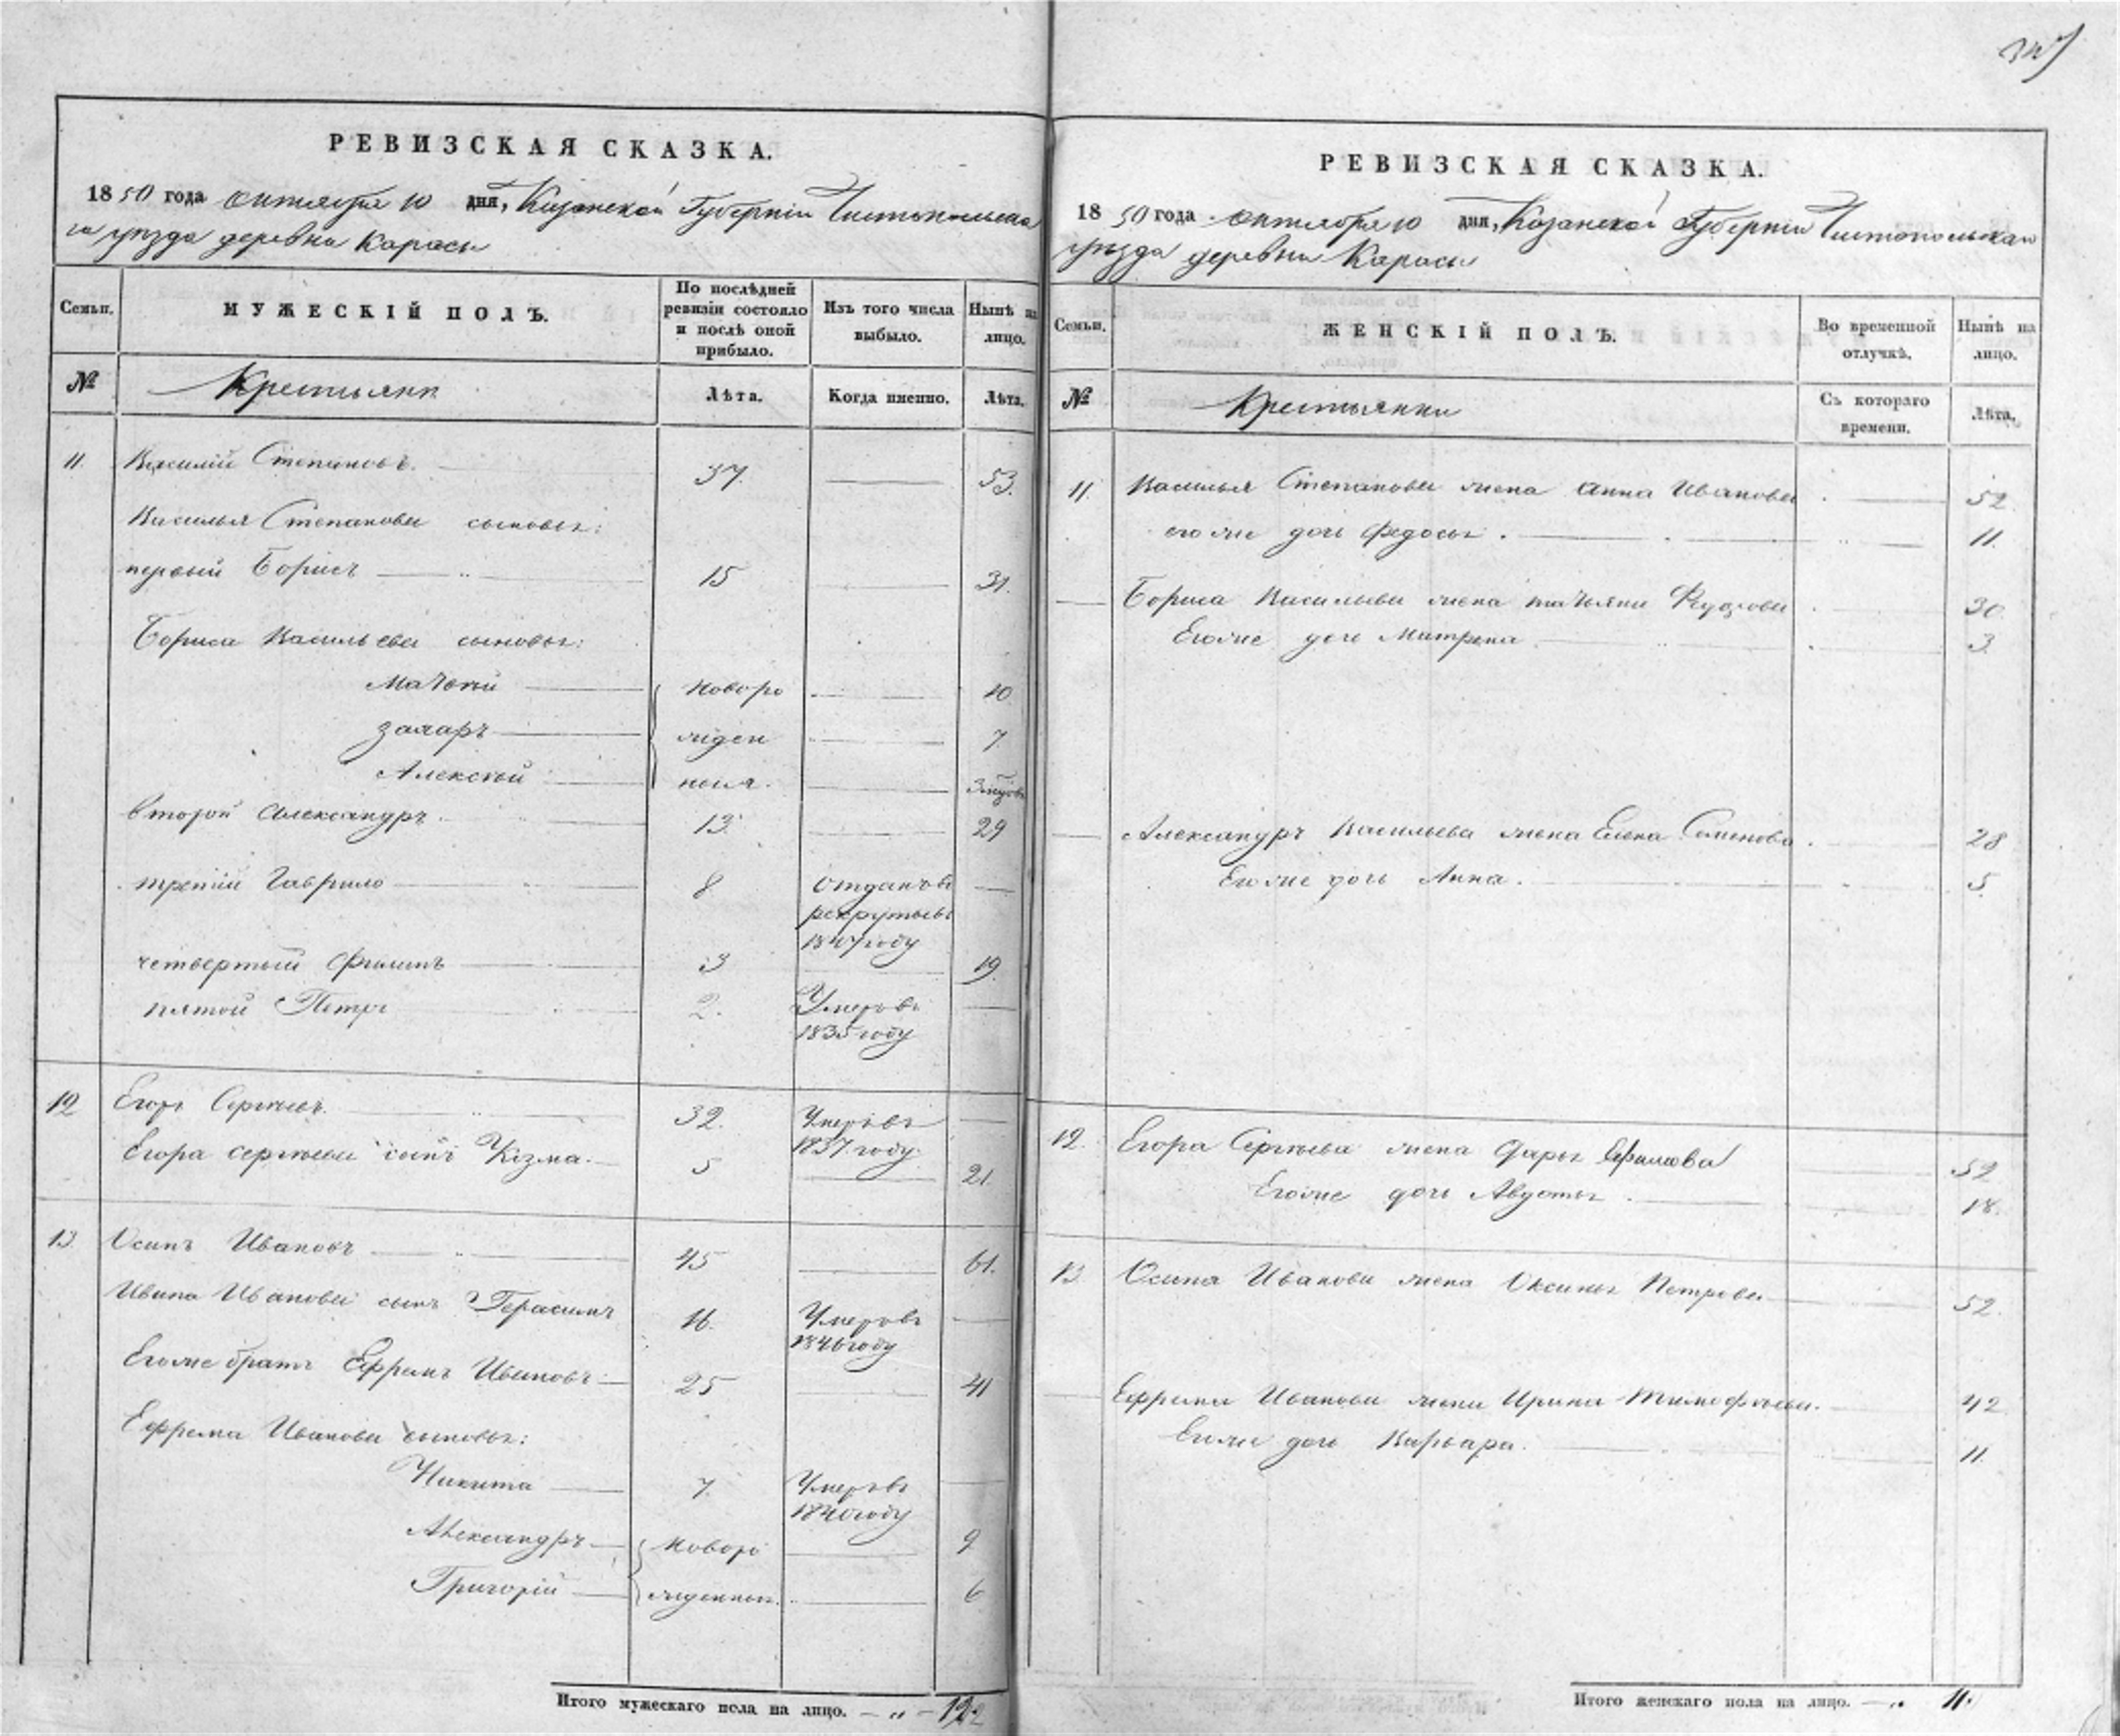 РЕВИЗСКАЯ СКАЗКА.
1850 года октября 10 дня, Казанской Губерніи Чистопольска
го уѣзда деревни Карасы
Семьи. МУЖЕСКІЙ ПОЛЪ. По послѣдней ревизіи состояло и послѣ оной прибыло. Изъ того числа выбыло. Нынѣ на лицо.
№ Крестьяня Лѣта. Когда именно. Лѣта.
11. Василій Степановъ. 37. 53.
Василья Степанова сыновья:
первый Борисъ 15 31.
Бориса Васильева сыновья:
Матвѣй Новоро 10
Захаръ жден 7.
Алексѣй ныя. 3
второй Александръ 13. 29
третій Гаврило 8 Отданъ въ
рекруты въ
1847 году
четвертый Филипъ 3 19.
пятой Петръ 2. Умеръ въ
1835 году
12 Егоръ Сергѣевъ. 32. Умеръ въ
1837 году
Егора Сергѣева сынъ Козма. 5 21.
13. Осипъ Ивановъ 45 61.
Ивана Иванова сынъ Герасимъ 16. Умеръ въ
1846 году
Его же братъ Ефремъ Ивановъ 25 41
Ефрема Иванова сыновья:
Никита 7. Умеръ въ
1840 году
Александръ Новоро 9
Григорій жденныя. 6
Итого мужескаго пола на лицо. — „ — 12.
РЕВИЗСКАЯ СКАЗКА.
1850 года октября 10 дня, Казанской Губерніи Чистопольскаго
уѣзда деревни Карасы
Семьи. ЖЕНСКІЙ ПОЛЪ. Во временной отлучкѣ. Нынѣ на лицо.
№ Крестьянки Съ котораго времени. Лѣта.
11. Василья Степанова жена Анна Иванова 52.
его же дочь Федосья. 11.
Бориса Васильева жена татьяна 30.
Его же дочь Матрена 3.
Александръ Васильева жена Елена Семенова 28
Его же дочь Анна. 5.
12. Егора Сергѣева жена Дарья Ефимова 52
Его же дочь Авдотья. 18.
13. Осипа Иванова жена Оксинья Петрова 52.
Ефрема Иванова жена Ирина Тимофѣева. 42
Его же дочь Варвара. 11.
Итого женскаго пола на лицо. — „ 11.